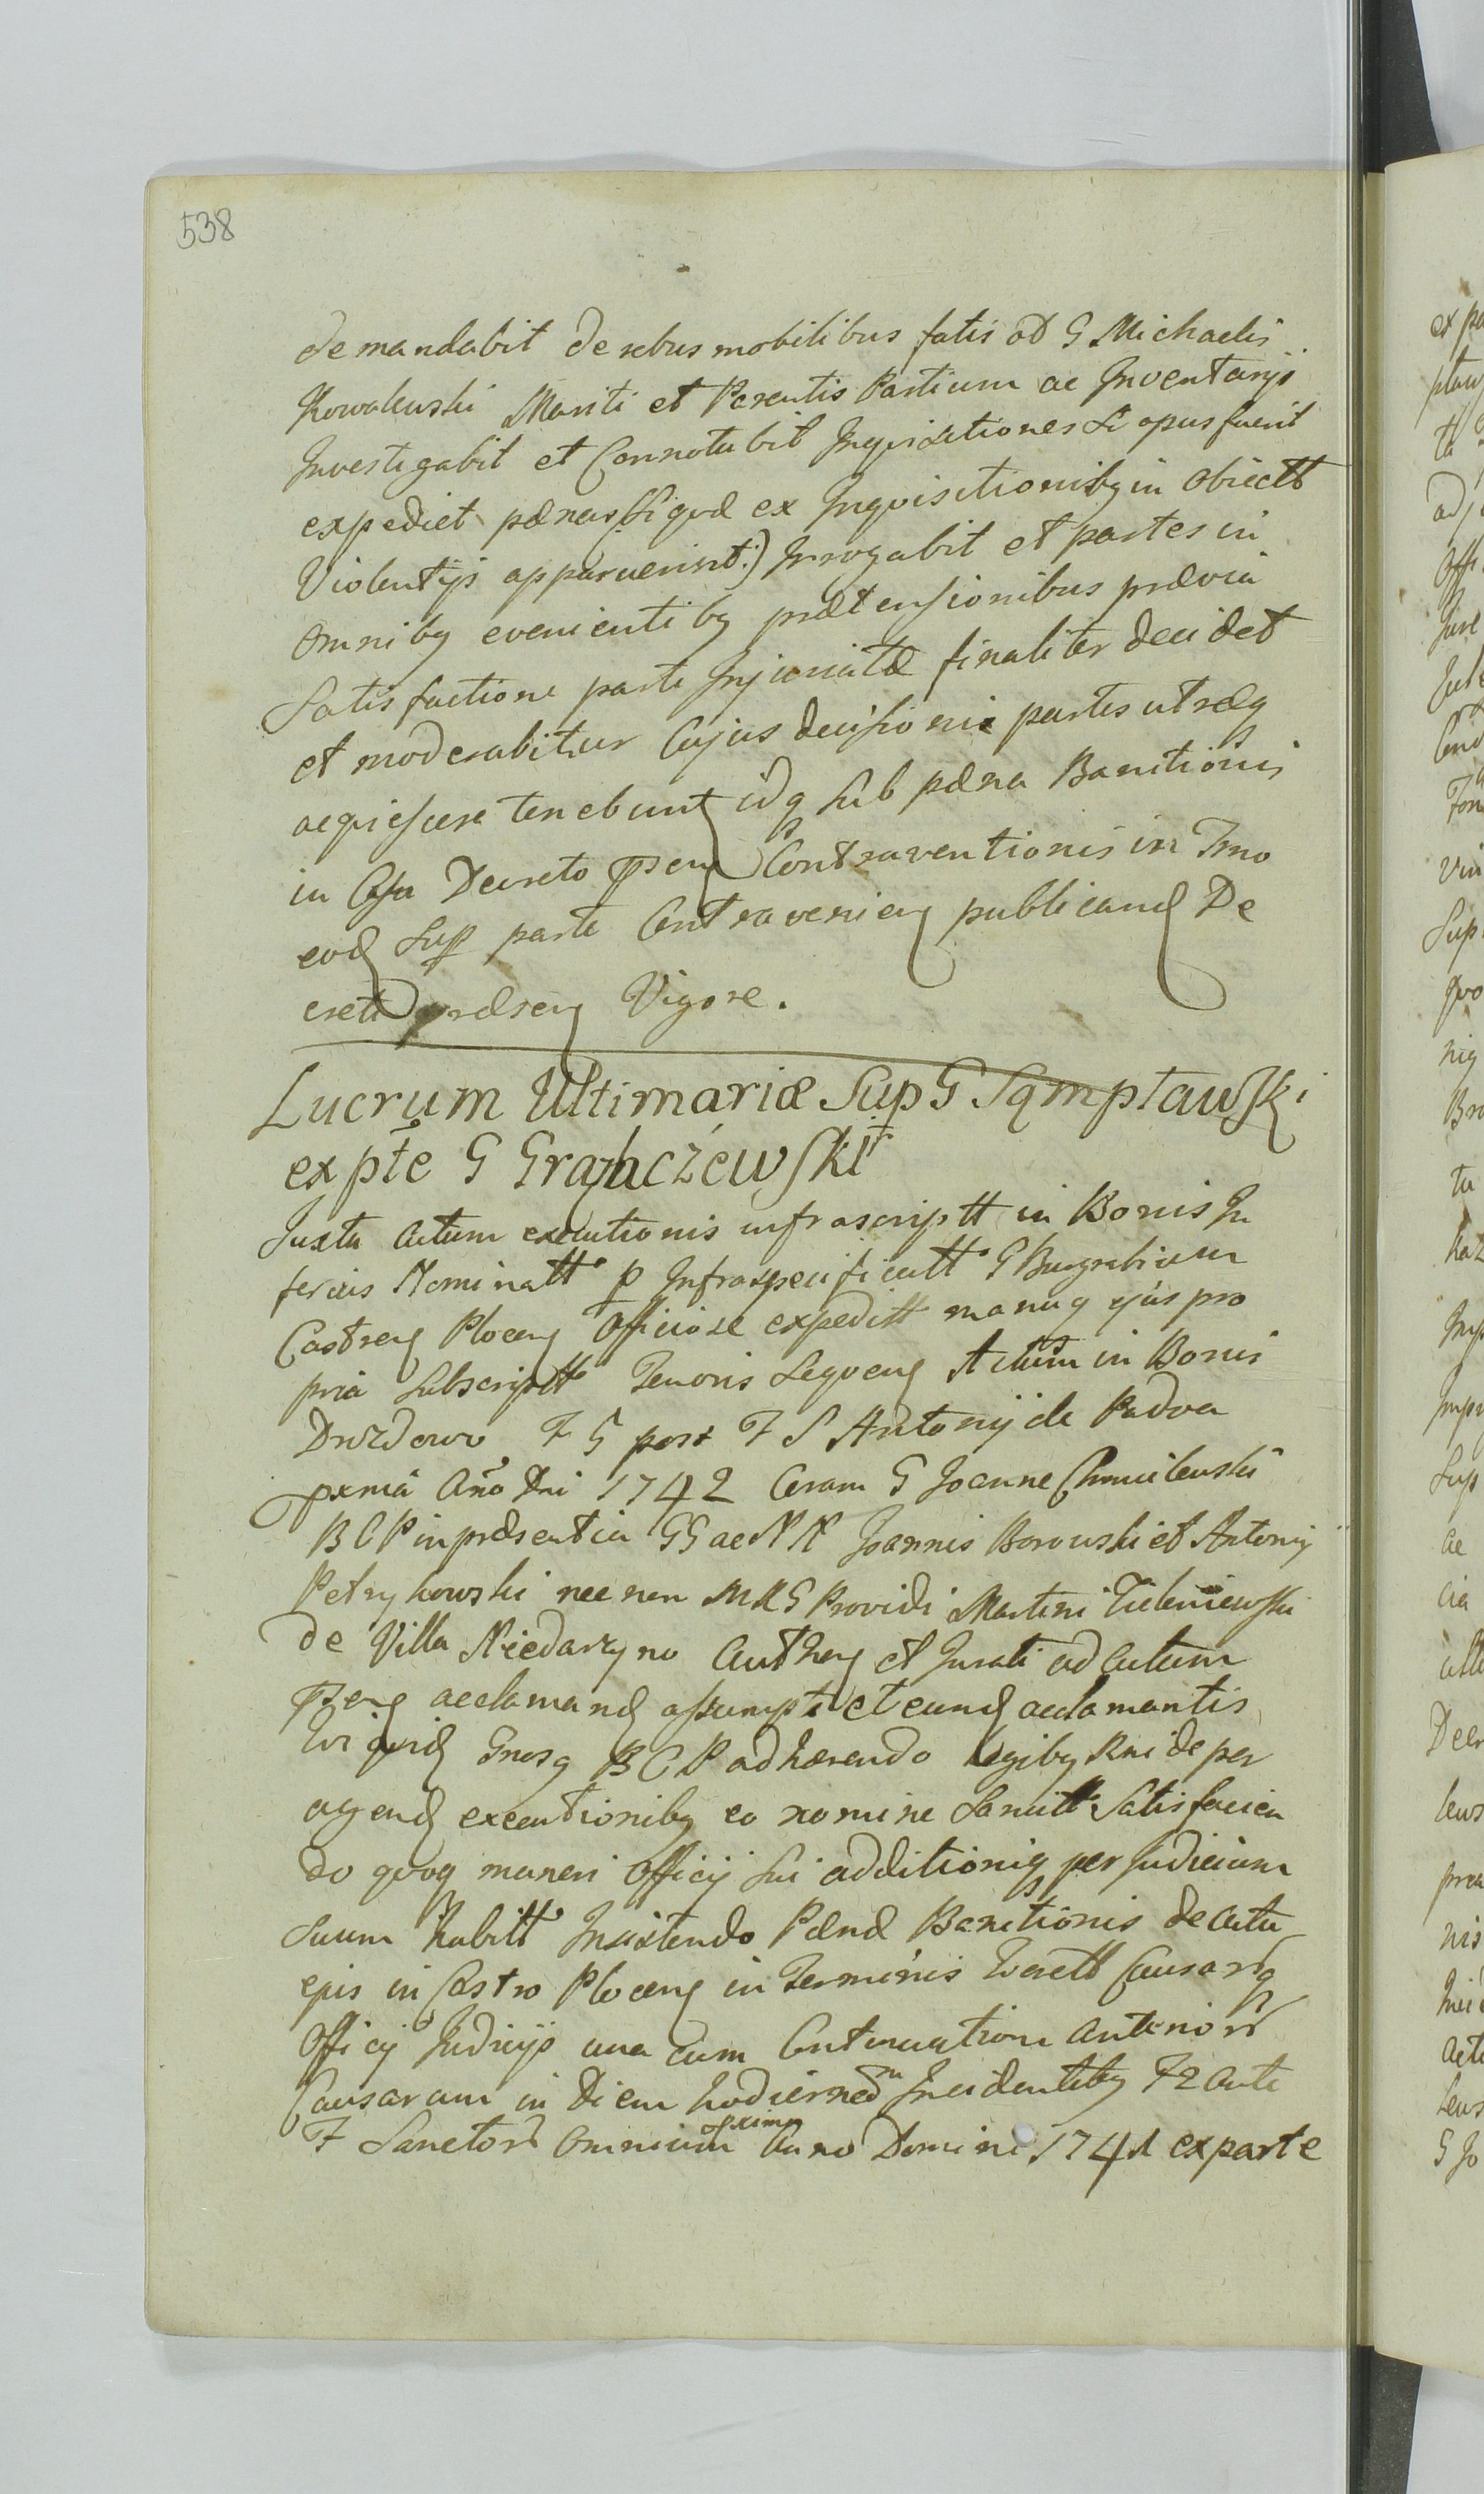 538
demandabit de rebus mobilibus satis ad G Michaelis
Kowalewski Mariti et Parentis Partium ac Inventarijs
Investigabit et Connotabit Inquisitiones si opus fuerit
expediet pænas (si quæ ex Inquisitionibq in obiectt
Violentijs apparuerint:) Irrogabit et partes in
omnibq evenientibq prætensionibus prævia
Satisfactione parte Injuriatæ finaliter decidet
et moderabitur Cujus decisionis partes utræq
acquiescere tenebunt idq sub pæna Banitionis
in Casu Decreto Contraventionis in Tmo
eod Sup parte Contravenien publicand De
creti præsen Vigore.
Lucrum Ultimariæ Sup G Sąmpławski
ex pte G Grąbczewski
Juxta Actum executionis infrascriptt in Bonis In
ferius Nominatt p Infraspecificatt G Burgrabium
Castren Plocen Officiose expeditt manuq ejus pro
pria Subscriptt Tenoris Sequen Actum in Bonis
Drozdowo F 5 post F S Antonij de Padva
pxma Año Dni 1742 Coram G Joanne Chmielewski
B C P in præsentia GG ac NN Joannis Borowski et Antonij
Petrykowski nec non MRG Providi Martini
de Villa Niedarzyno Authen et Jurati ad Actum
acclamand assumpti et eund acclamantis
B C P adhærendo legibq Rni de per
agend executionibq eo nomine Sancitt Satisfacien
do quoq muneri Officij sui additioniq per Judicium
suum habitt Insistendo Pænæ Banitionis de actu
ejus in Castro Plocen in Terminis Causarq
Officij Judicijs una cum Continuatione anterior
Causarum in Diem hodiernam Incidentibq F 2 ante
F Sanctor Omnium pxima Anno Domini 1741 ex parte